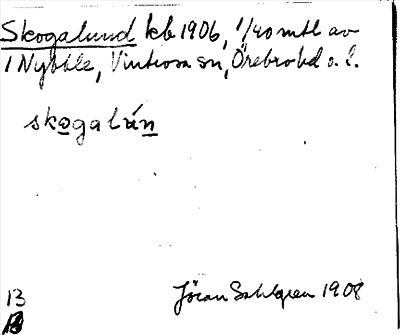 Skogalund kb 1906, 1/40 mtl av
1 Nybble, Vintrosa sn, Örebro hd o. l.
skogalún
Jöran Sahlgren 1908
13